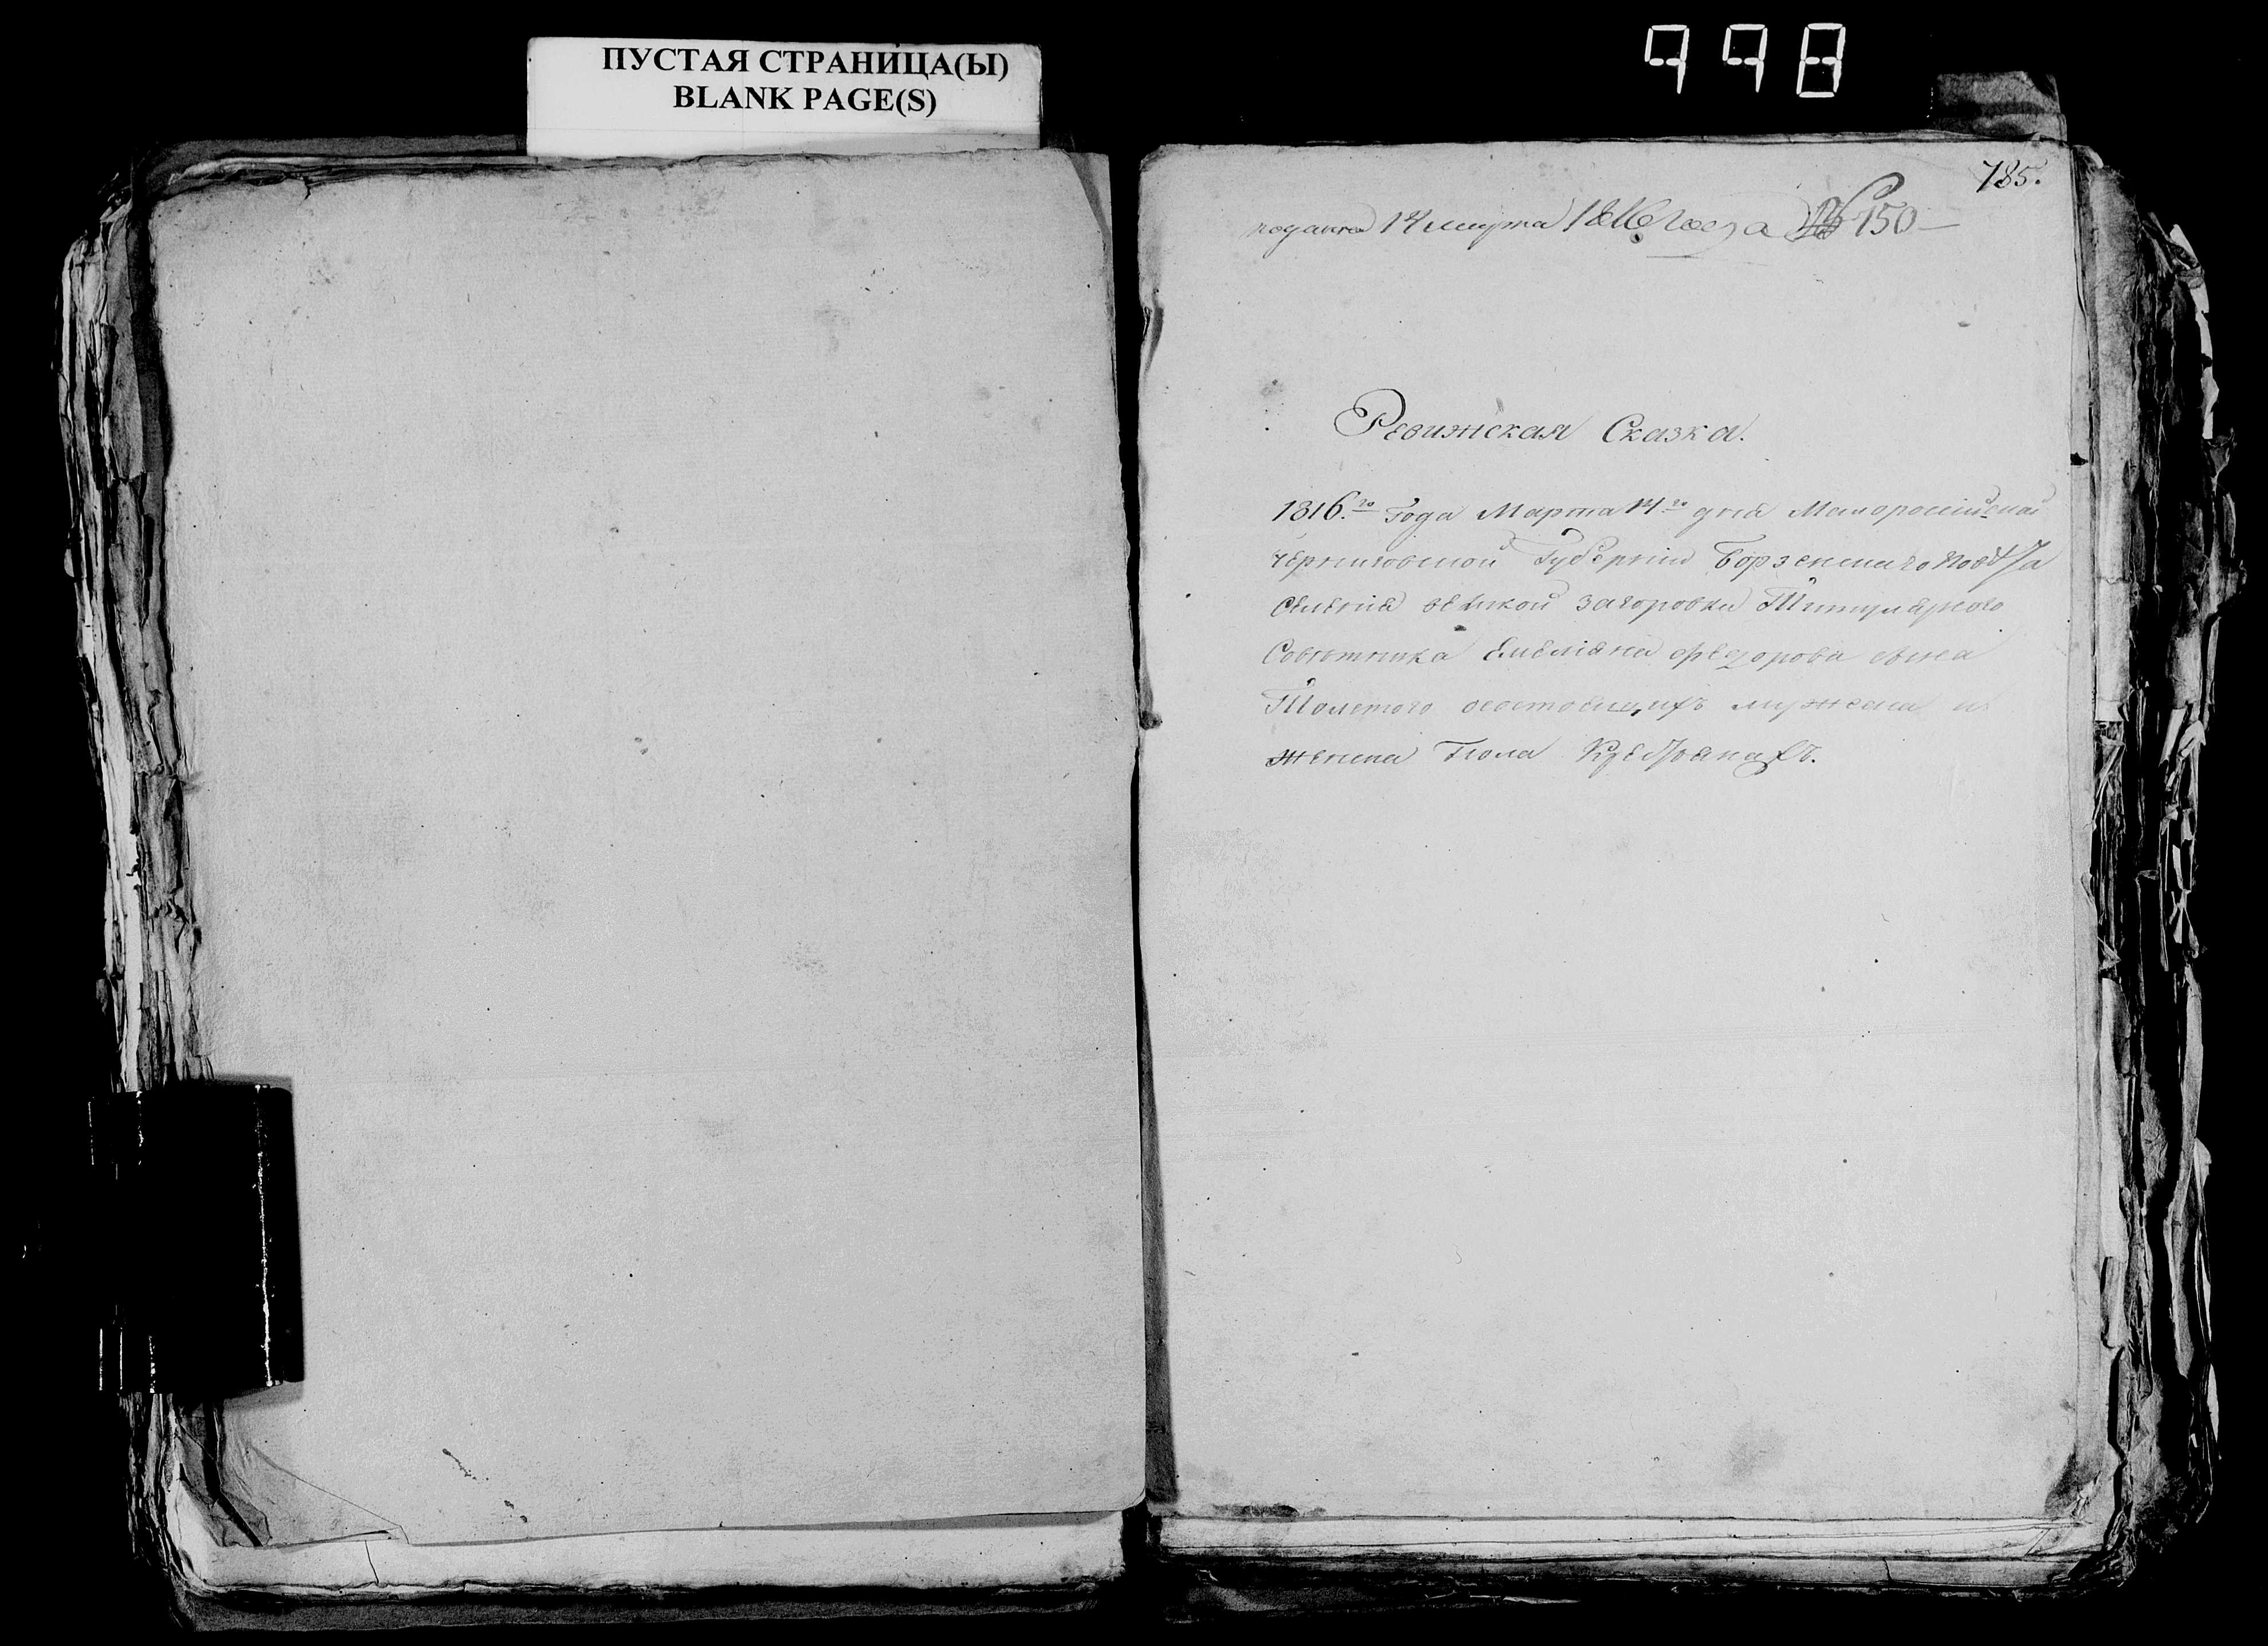 ПУСТАЯ СТРАНИЦА(Ы)
BLANK PAGE(S)
998
785.
подана 14 марта 1816 года № 150
Ревижская Сказка.
1816.го Года Марта 14го дня Малороссийской
Черниговской Губернии Борзенского повѣта
Селения великой загоровки Титулярного
Советника Емелияна Федорова сына
Толстого осостоящихъ мужеска и
женска пола Крестьянахъ.